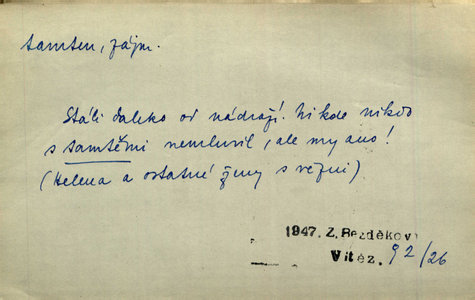 tamten, zájm.
Stáli daleko od nádraží. Nikde nikdo
s tamtěmi nemluvil, ale my ano!
(Helena a ostatné ženy s vězni).
1947. Z. Bezděkov
Vítěz. 92/26